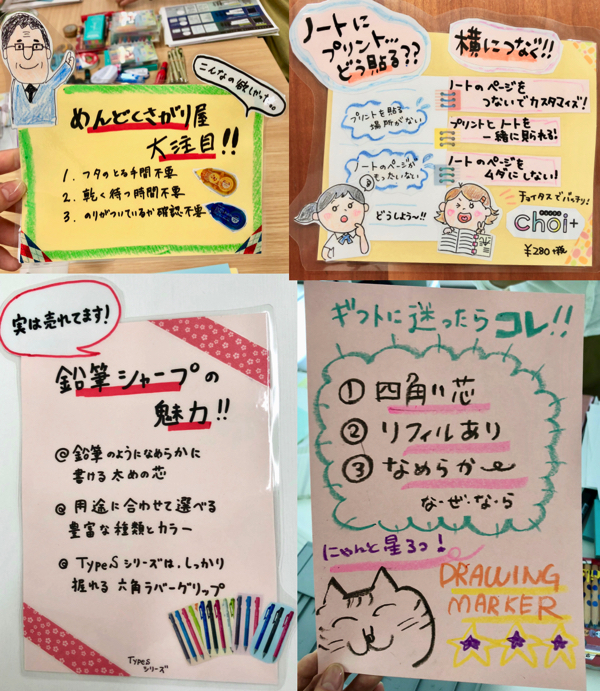 こんなの欲しかった。。
めんどくさがり屋
大注目!!
1. フタのとる手間不要
2. 乾く待つ時間不要
3. のりがついているか確認不要
ノートに
プリント…
どう貼る??
横につなぐ!!
プリントを貼る
場所がない
ノートのページが
もったいない
どうしよう〜!!
ノートのページを
つないでカスタマイズ!
プリントとノートを
一緒に見られる!
ノートのページを
ムダにしない!
チョイタスでバッチリ!
choi+
¥280+税
実は売れてます!
鉛筆シャープの
魅力!!
@ 鉛筆のようになめらかに
書ける太めの芯
@ 用途に合わせて選べる
豊富な種類とカラー
@ TypeSシリーズは、しっかり
握れる六角ラバーグリップ
TypeS
シリーズ
ギフトに迷ったら
コレ!!
① 四角い芯
② リフィルあり
③ なめらか
な・ぜ・な・ら
にゃんと星3つ!
DRAWING
MARKER